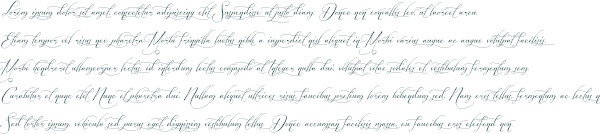 Lorem ipsum dolor sit amet, consectetur adipiscing elit. Suspendisse ut justo diam. Donec non convallis leo, ut laoreet arcu.
Etiam tempor vel risus nec pharetra. Morbi fringilla luctus nibh, a imperdiet nisl aliquet in. Morbi varius augue ac augue volutpat facilisis.
Morbi hendrerit ullamcorper lectus, id interdum lectus commodo at. Integer nulla dui, volutpat vitae sodales et, vestibulum fermentum sem.
Curabitur et nunc elit. Nunc et pharetra dui. Nullam aliquet ultrices risus, faucibus pretium lorem bibendum sed. Nam eros tellus, fermentum ac lectus q
Sed tortor ipsum, vehicula sed purus eget, dignissim vestibulum tellus. Donec accumsan facilisis massa, eu faucibus eros eleifend non.